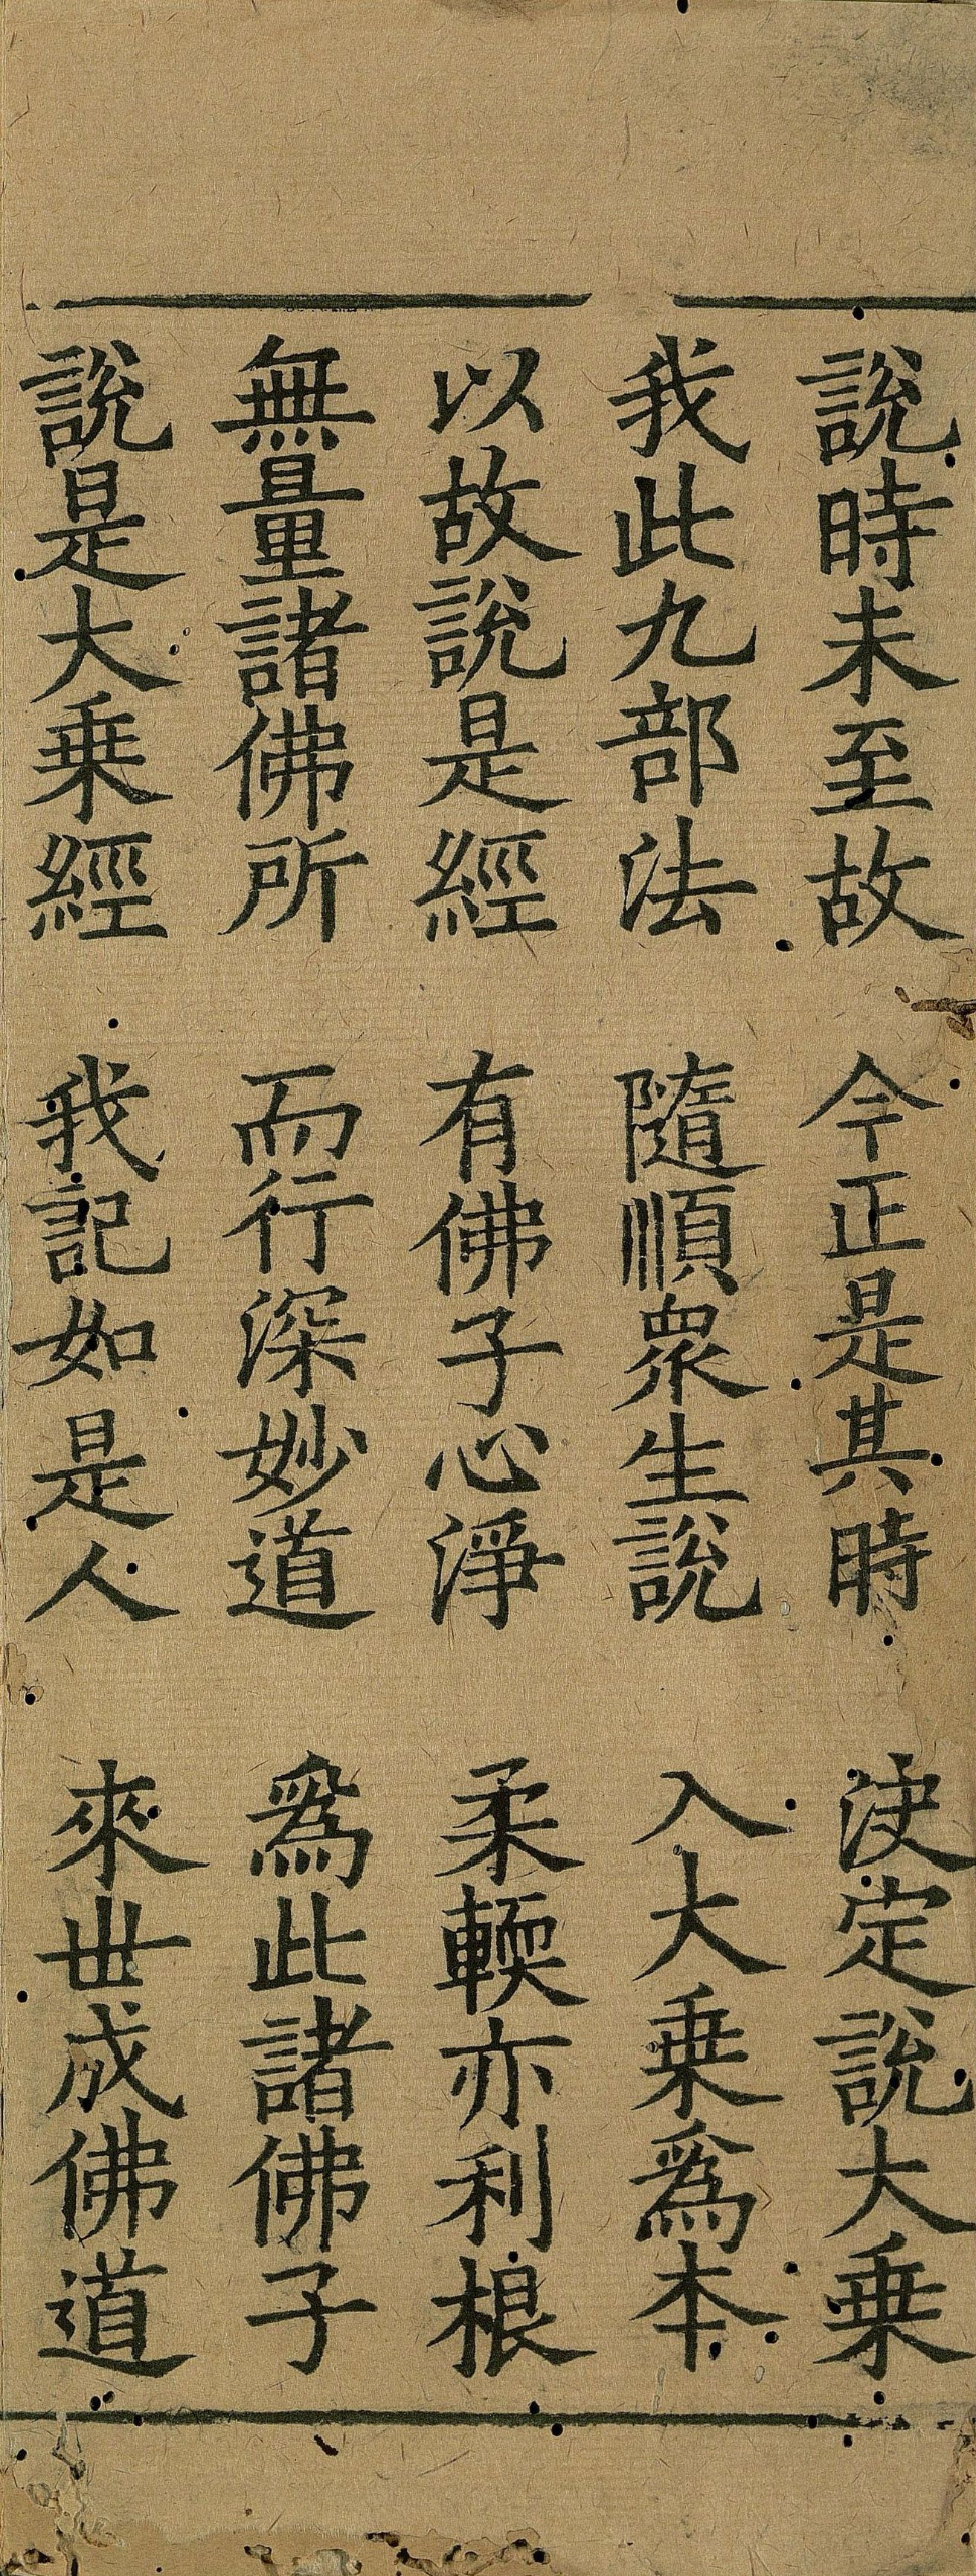 說時未至故　今正是其時　决定說大乗
我此九部法　隨順眾生說　入大乗爲本
以故說是經　有佛子心淨　柔輭亦利根
無量諸佛所　而行深妙道　爲此諸佛子
說是大乗經　我記如是人　來丗成佛道